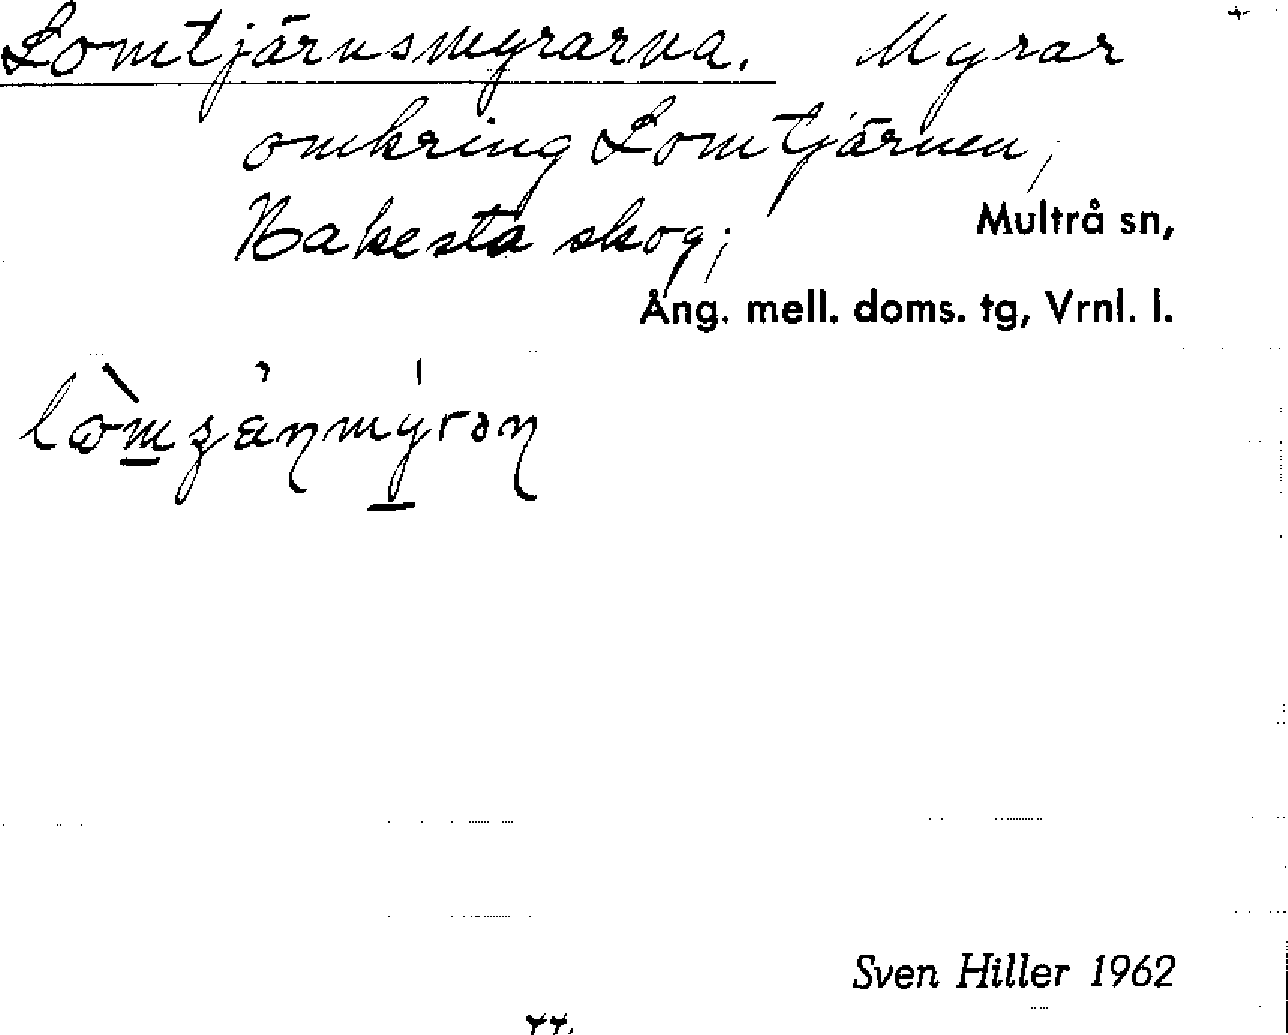 Lomtjärnsmyrarna. Myrar
omkring Lomtjärnen,
Bakesta skog; Multrå sn,
Ång. mell. doms. tg, Vrnl. l.
Sven Hiller 1962